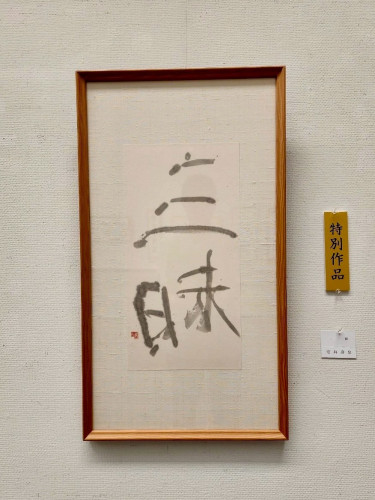 三昧
特別作品